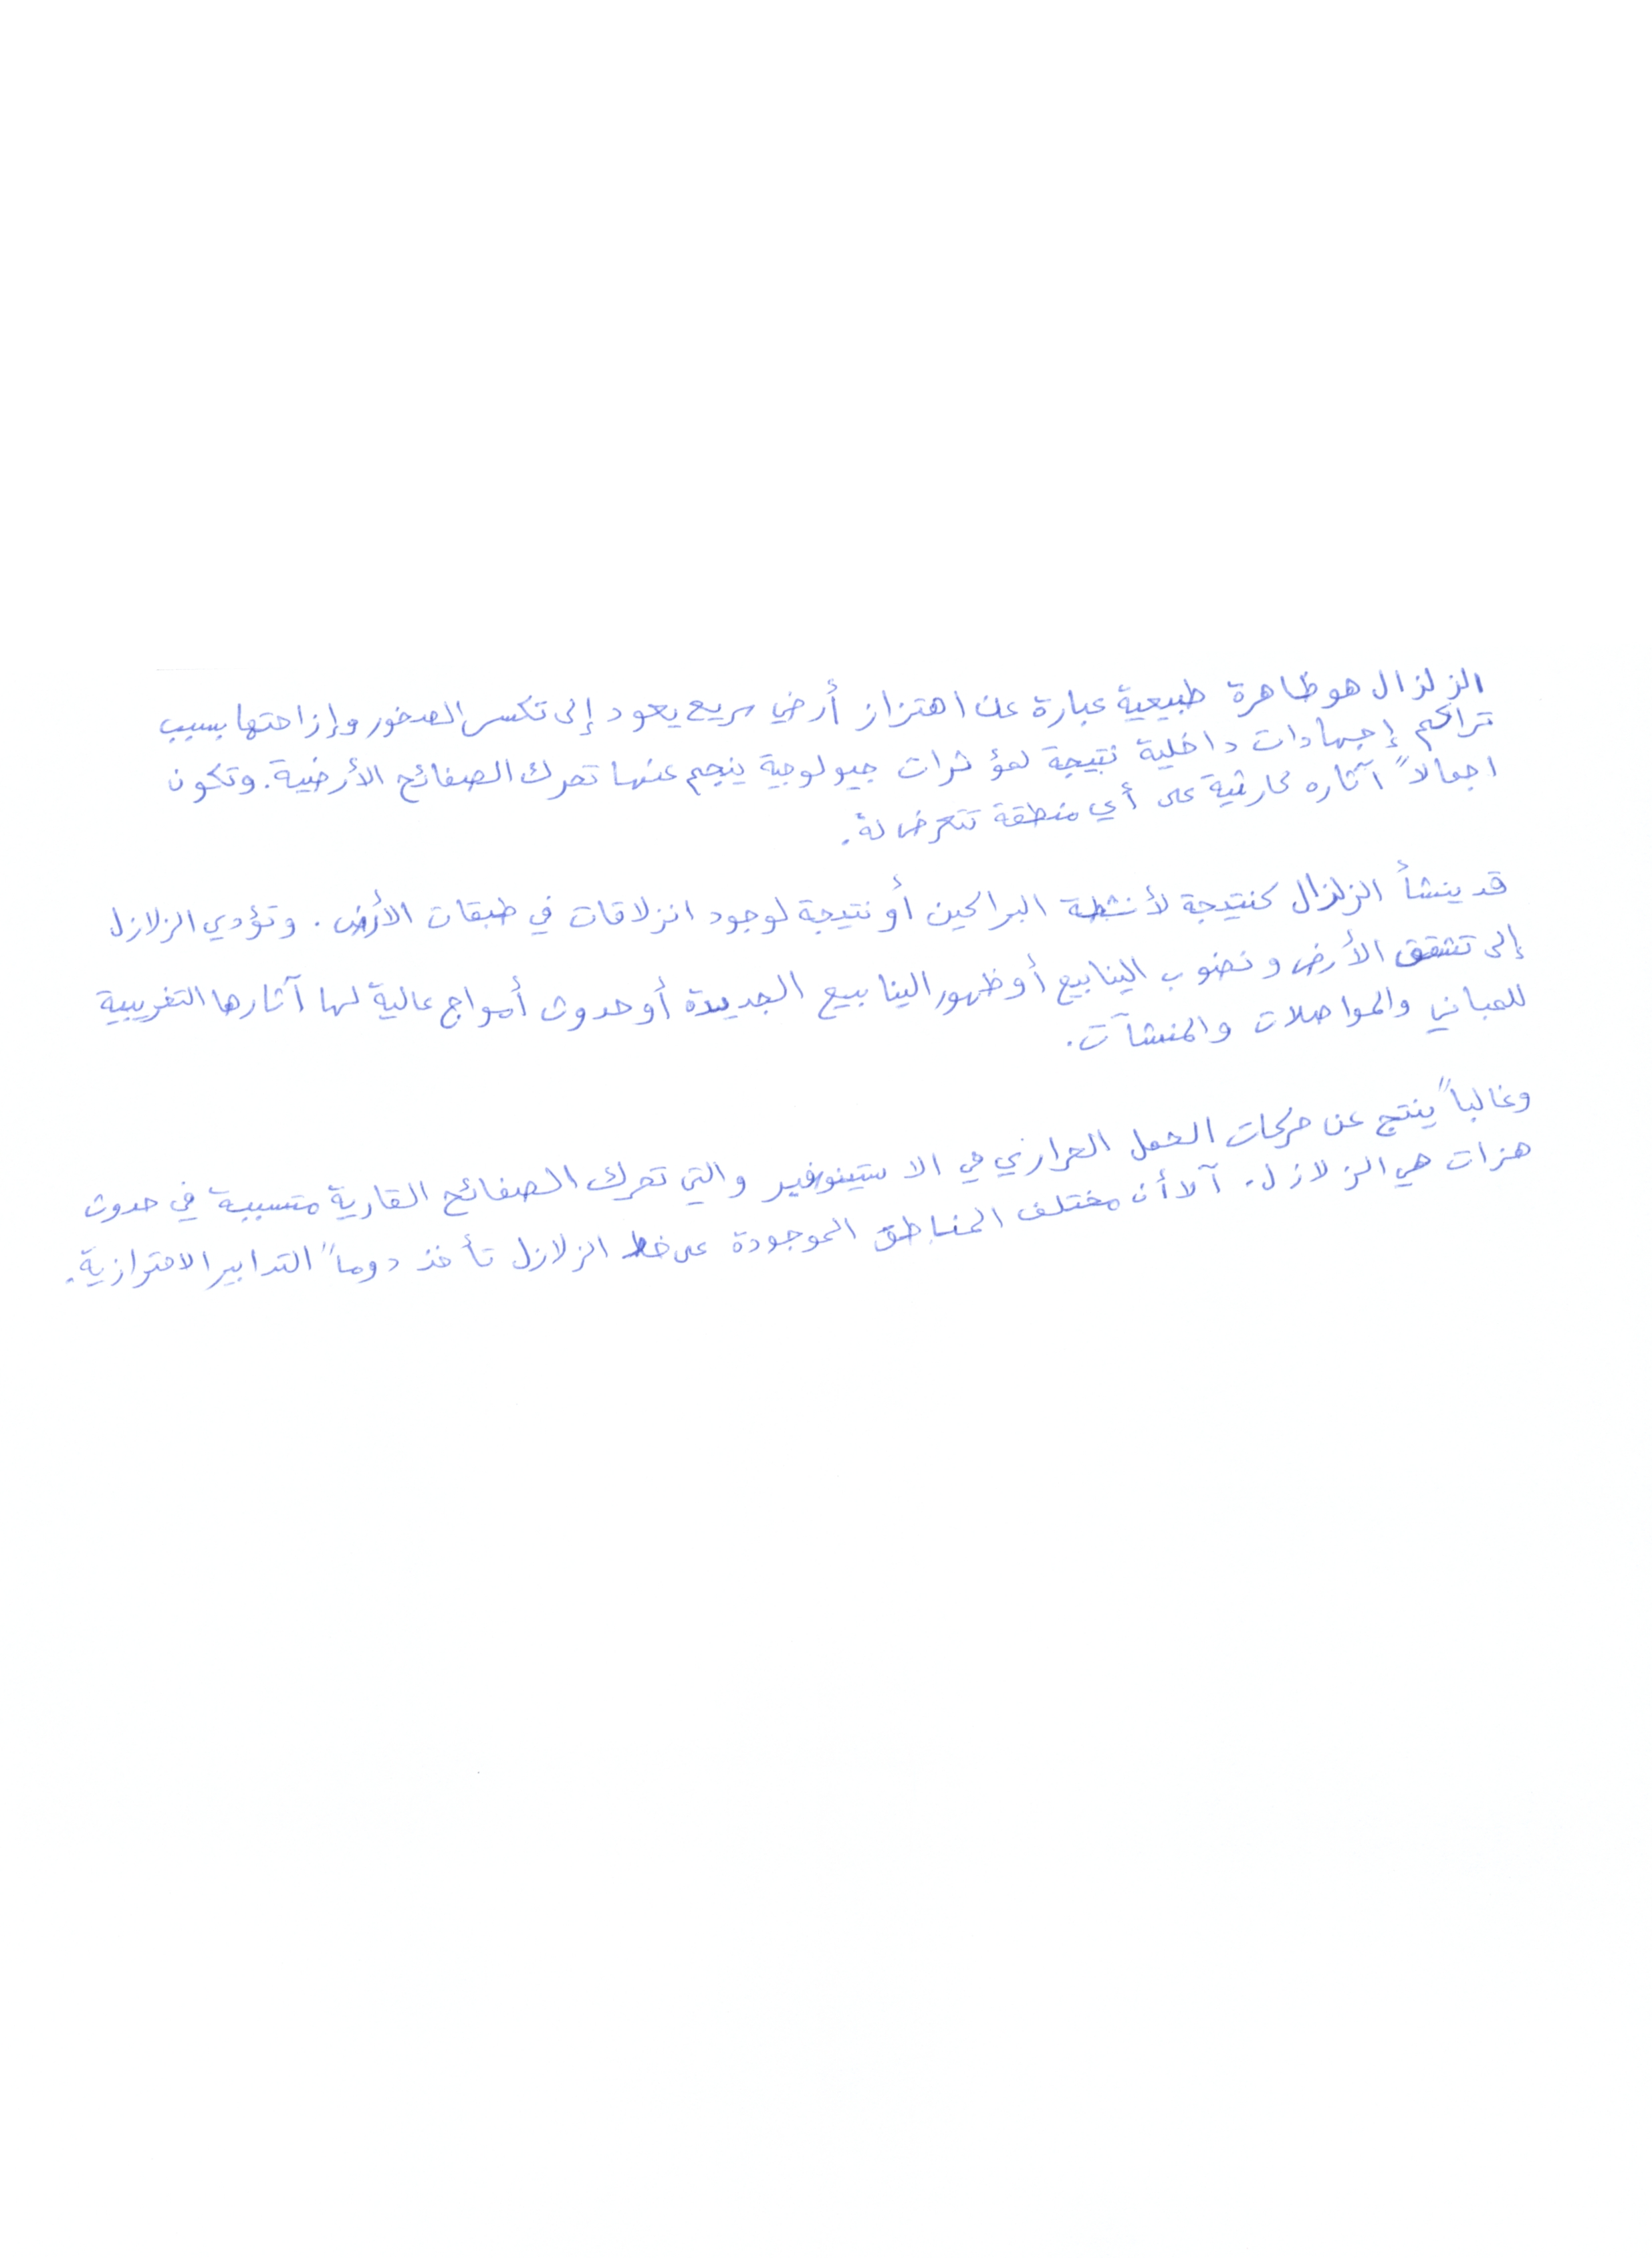 الزلزال هو ظاهرة طبيعية عبارة عن اهتزاز أرضي سريع يعود إلى تكسر الصخور وإزاحتها بسبب
تراكم إجهادات داخلية نتيجة لمؤثرات جيولوجية ينجم عنها تحرك الصفائح الأرضية. وتكون
اجمالاً آثاره كارثية على أي منطقة تتعرض له.
قد ينشأ الزلزال كنتيجة لأنشطة البراكين أو نتيجة لوجود انزلاقات في طبقات الأرض. وتؤدي الزلازل
إلى تشقق الأرض ونضوب الينابيع أو ظهور الينابيع الجديدة أو حدوث أمواج عالية لها آثارها التخريبية
للمباني والمواصلات والمنشآت.
وغالباً ينتج عن حركات الحمل الحراري في الاستينوسفير والتي تحرك الصفائح القارية متسببة في حدوث
هزات هي الزلازل. آلا أن مختلف المناطق الموجودة على خط الزلازل تأخذ دوماً التدابير الاحترازية.